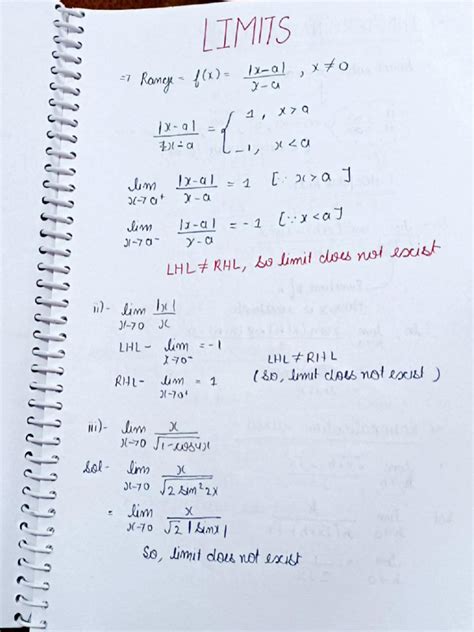 LIMITS
⇒ Range = f(x) = |x-a|/x-a , x≠0
|x-a|/x-a = { 1, x>a
-1, x<a
lim x→a⁺ |x-a|/x-a = 1 [∵ x>a]
lim x→a⁻ |x-a|/x-a = -1 [∵ x<a]
LHL ≠ RHL, so limit does not exist
ii)- lim x→0 |x|/x
LHL - lim x→0⁻ = -1
LHL ≠ RHL
RHL - lim x→0⁺ = 1
(So, limit does not exist)
iii)- lim x→0 x/√1-cos4x
Sol- lim x→0 x/√2 sin²2x
= lim x→0 x/√2 |sinx|
So, limit does not exist